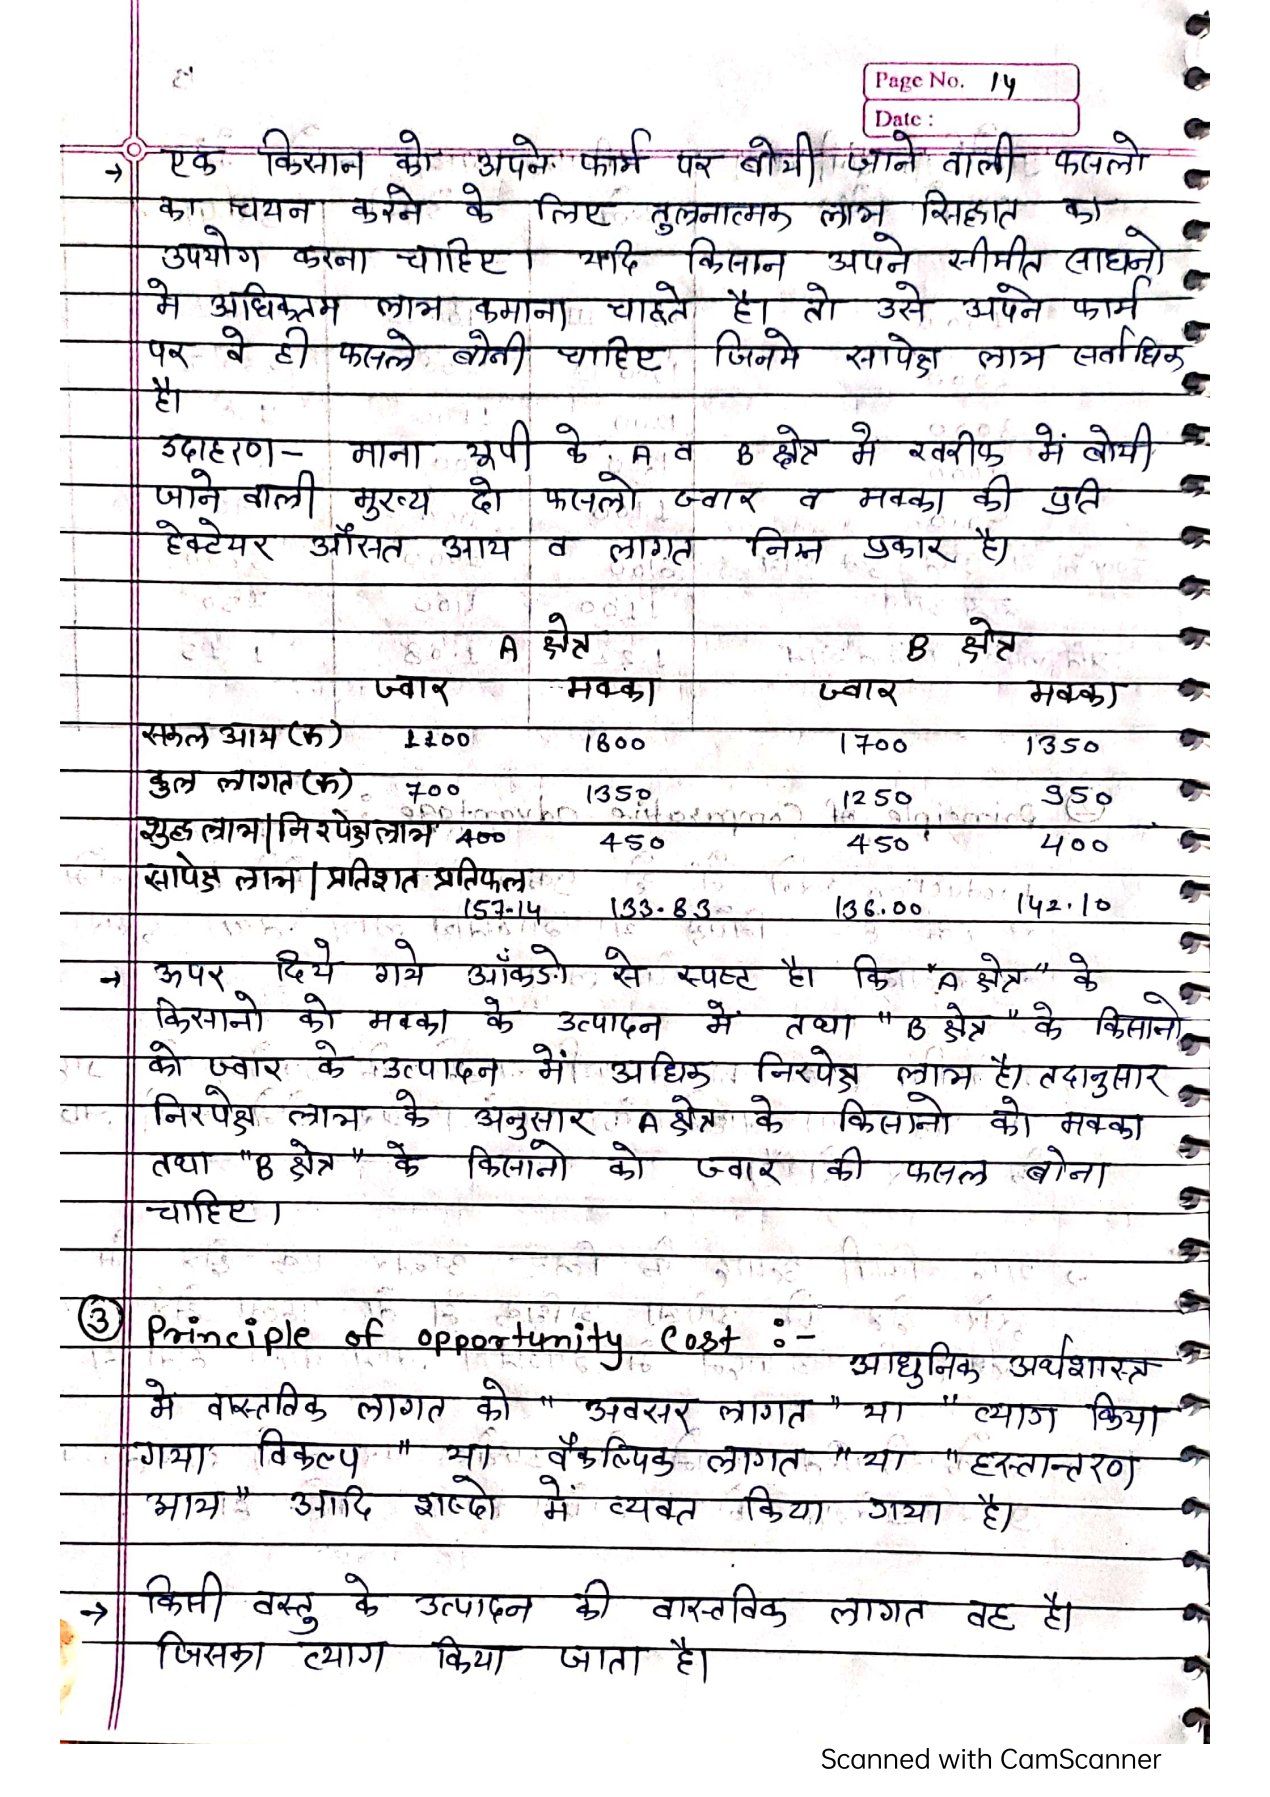 Page No. 14
Date :
→ एक किसान को अपने फार्म पर बोयी जाने वाली फसलो
का चयन करने के लिए तुलनात्मक लाभ सिद्धात का
उपयोग करना चाहिए। यदि किसान अपने सीमीत साधनो
मे अधिकतम लाभ कमाना चाहते है। तो उसे अपने फार्म
पर वे ही फसले बोनी चाहिए जिनमे सापेक्ष लाभ सर्वाधिक
है।
उदाहरण - माना यूपी के A व B क्षेत्र मे खरीफ में बोयी
जाने वाली मुख्य दो फसलो ज्वार व मक्का की प्रति
हेक्टेयर औसत आय व लागत निम्न प्रकार है।
A क्षेत्र B क्षेत्र
ज्वार मक्का ज्वार मक्का
सकल आय (रू) 1100 1800 1700 1350
कुल लागत (रू) 700 1350 1250 950
शुद्ध लाभ | निरपेक्ष लाभ 400 450 450 400
सापेक्ष लाभ | प्रतिशत प्रतिफल
157.14 133.83 136.00 142.10
→ ऊपर दिये गये आँकडो से स्पष्ट है। कि "A क्षेत्र" के
किसानो को मक्का के उत्पादन में तथा "B क्षेत्र" के किसानो
को ज्वार के उत्पादन में अधिक निरपेक्ष लाभ है। तदानुसार
निरपेक्ष लाभ के अनुसार A क्षेत्र के किसानो को मक्का
तथा "B क्षेत्र" के किसानो को ज्वार की फसल बोना
चाहिए।
③ Principle of opportunity cost :-
आधुनिक अर्थशास्त्र
मे वास्तविक लागत को "अवसर लागत" या "त्याग किया
गया विकल्प" या वैकल्पिक लागत" या "हस्तान्तरण
आय" आदि शब्दो में व्यक्त किया गया है।
→ किसी वस्तु के उत्पादन की वास्तविक लागत वह है।
जिसका त्याग किया जाता है।
Scanned with CamScanner